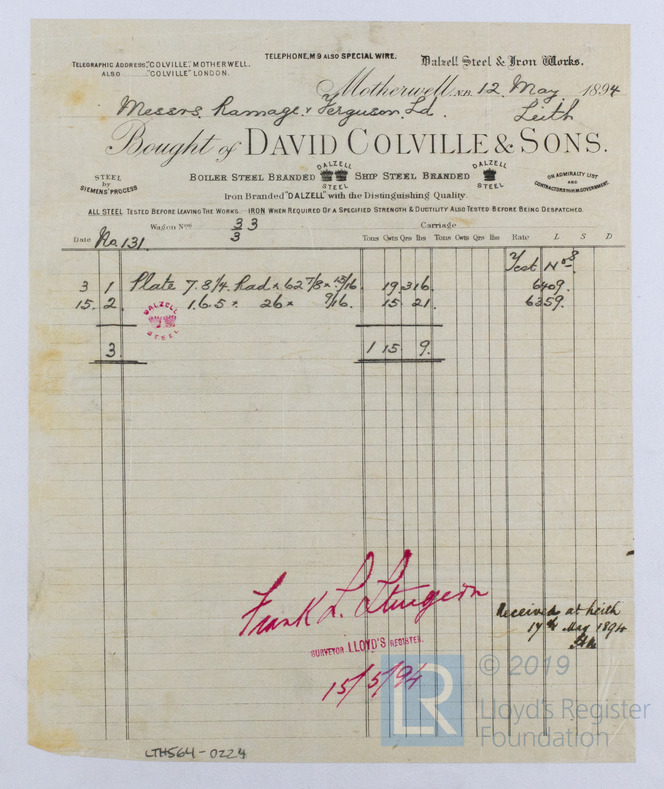 TELEGRAPHIC ADDRESS, "COLVILLE", MOTHERWELL.
ALSO "COLVILLE" LONDON.
TELEPHONE, M 9 ALSO SPECIAL WIRE.
Dalzell Steel & Iron Works.
Motherwell, N.B. 12 May 1894
Messrs. Ramage & Ferguson Ld. Leith
Bought of DAVID COLVILLE & SONS.
STEEL by SIEMENS' PROCESS
BOILER STEEL BRANDED DALZELL STEEL SHIP STEEL BRANDED DALZELL STEEL
ON ADMIRALTY LIST AND CONTRACTORS TO H.M. GOVERNMENT.
Iron Branded "DALZELL" with the Distinguishing Quality.
ALL STEEL TESTED BEFORE LEAVING THE WORKS. IRON WHEN REQUIRED OF A SPECIFIED STRENGTH & DUCTILITY ALSO TESTED BEFORE BEING DESPATCHED.
Wagon Nos 33
3
Carriage
Date No 131. Tons Cwts Qrs lbs Tons Cwts Qrs lbs Rate L S D
Test Nos
3 1 Plate 7.8 1/4 Rad x 62 7/8 x 15/16. 19 3 16. 6409.
15. 2. 1.6.5 x 26 x 9/16. 15 21. 6359.
DALZELL STEEL
3 1 15 9.
Frank L. Sturgeon
SURVEYOR LLOYD'S REGISTER.
15/5/94
Received at Leith
17th May 1894
LR
© 2019
Lloyd's Register
Foundation
LTH564-0224